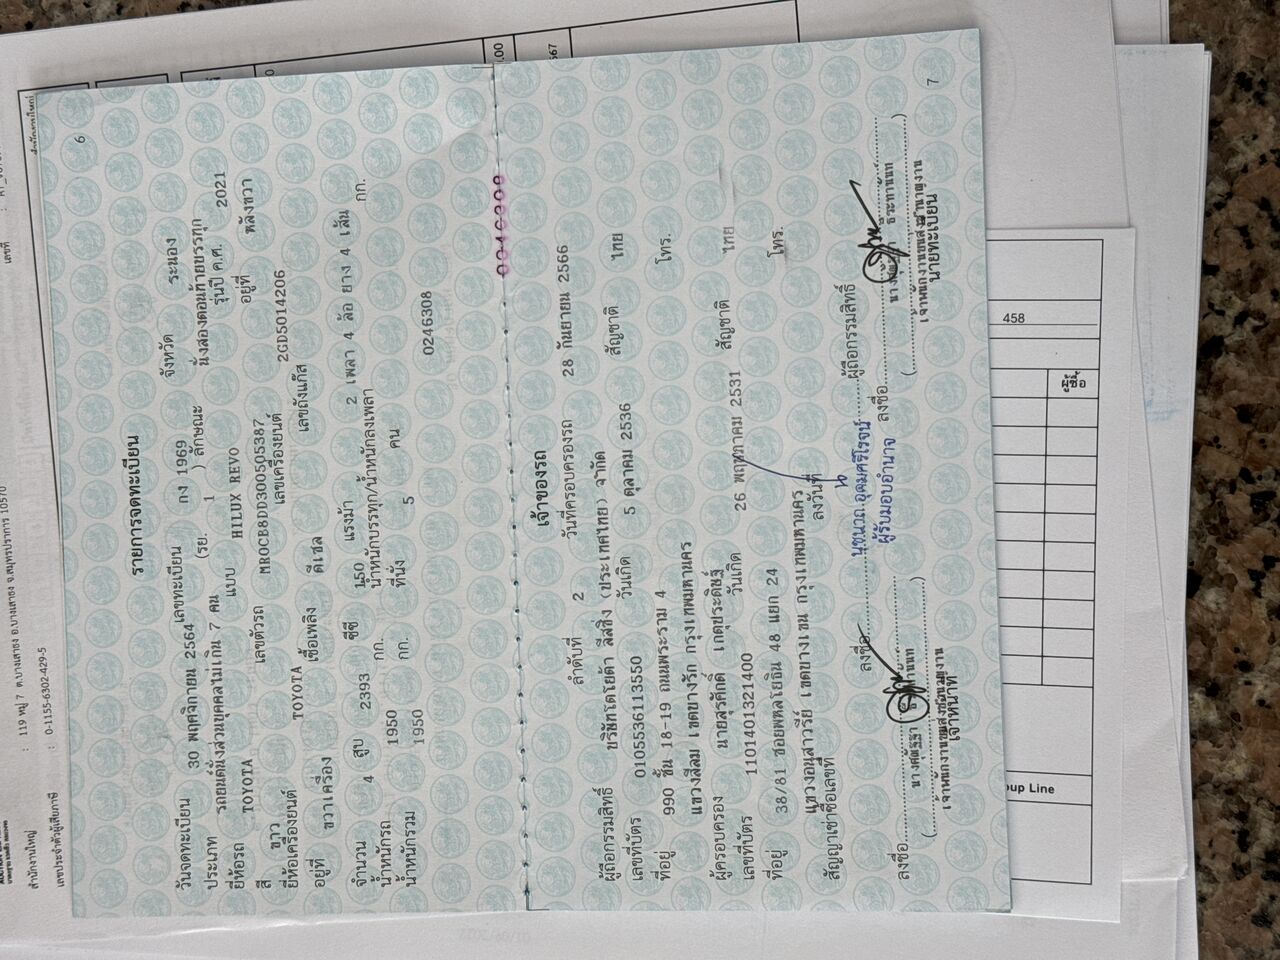 6
รายการจดทะเบียน
วันจดทะเบียน 30 พฤศจิกายน 2564 เลขทะเบียน กง 1969 จังหวัด ระนอง
ประเภท รถยนต์นั่งส่วนบุคคลไม่เกิน 7 คน (รย. 1 ) ลักษณะ นั่งสองตอนท้ายบรรทุก
ยี่ห้อรถ TOYOTA แบบ HILUX REVO รุ่นปี ค.ศ. 2021
สี ขาว เลขตัวรถ อยู่ที่ พลังขวา
ยี่ห้อเครื่องยนต์ TOYOTA เลขเครื่องยนต์ 2GD5014206
อยู่ที่ ขวาเครื่อง เชื้อเพลิง ดีเซล เลขถังแก๊ส
จำนวน 4 สูบ 2393 ซีซี แรงม้า 2 เพลา 4 ล้อ ยาง 4 เส้น
น้ำหนักรถ 1950 กก. น้ำหนักบรรทุก/น้ำหนักลงเพลา กก.
น้ำหนักรวม 1950 กก. ที่นั่ง 5 คน
0246308
เจ้าของรถ
ลำดับที่ 2 วันที่ครอบครองรถ 28 กันยายน 2566
ผู้ถือกรรมสิทธิ์ บริษัทโตโยต้า ลีสซิ่ง (ประเทศไทย) จำกัด
เลขที่บัตร 0105536113550 วันเกิด 5 ตุลาคม 2536 สัญชาติ ไทย
ที่อยู่ 990 ชั้น 18-19 ถนนพระราม 4 โทร.
แขวงสีลม เขตบางรัก กรุงเทพมหานคร
ผู้ครอบครอง นายสุรศักดิ์ เกตุประดิษฐ์
เลขที่บัตร 1101401321400 วันเกิด 26 พฤษภาคม 2531 สัญชาติ ไทย
ที่อยู่ 38/81 ซอยพหลโยธิน 48 แยก 24 โทร.
แขวงอนุสาวรีย์ เขตบางเขน กรุงเทพมหานคร
สัญญาเช่าซื้อเลขที่ ลงวันที่
ลงชื่อ ผู้ถือกรรมสิทธิ์
ผู้รับมอบอำนาจ
ลงชื่อ ลงชื่อ
เจ้าหน้าที่ นายทะเบียน
7
เลขที่
สำนักงานใหญ่ : 119 หมู่ 7 ต.บางเสาธง อ.บางเสาธง จ.สมุทรปราการ 10570
เลขประจำตัวผู้เสียภาษี : 0-1155-6302-429-5
458
oup Line